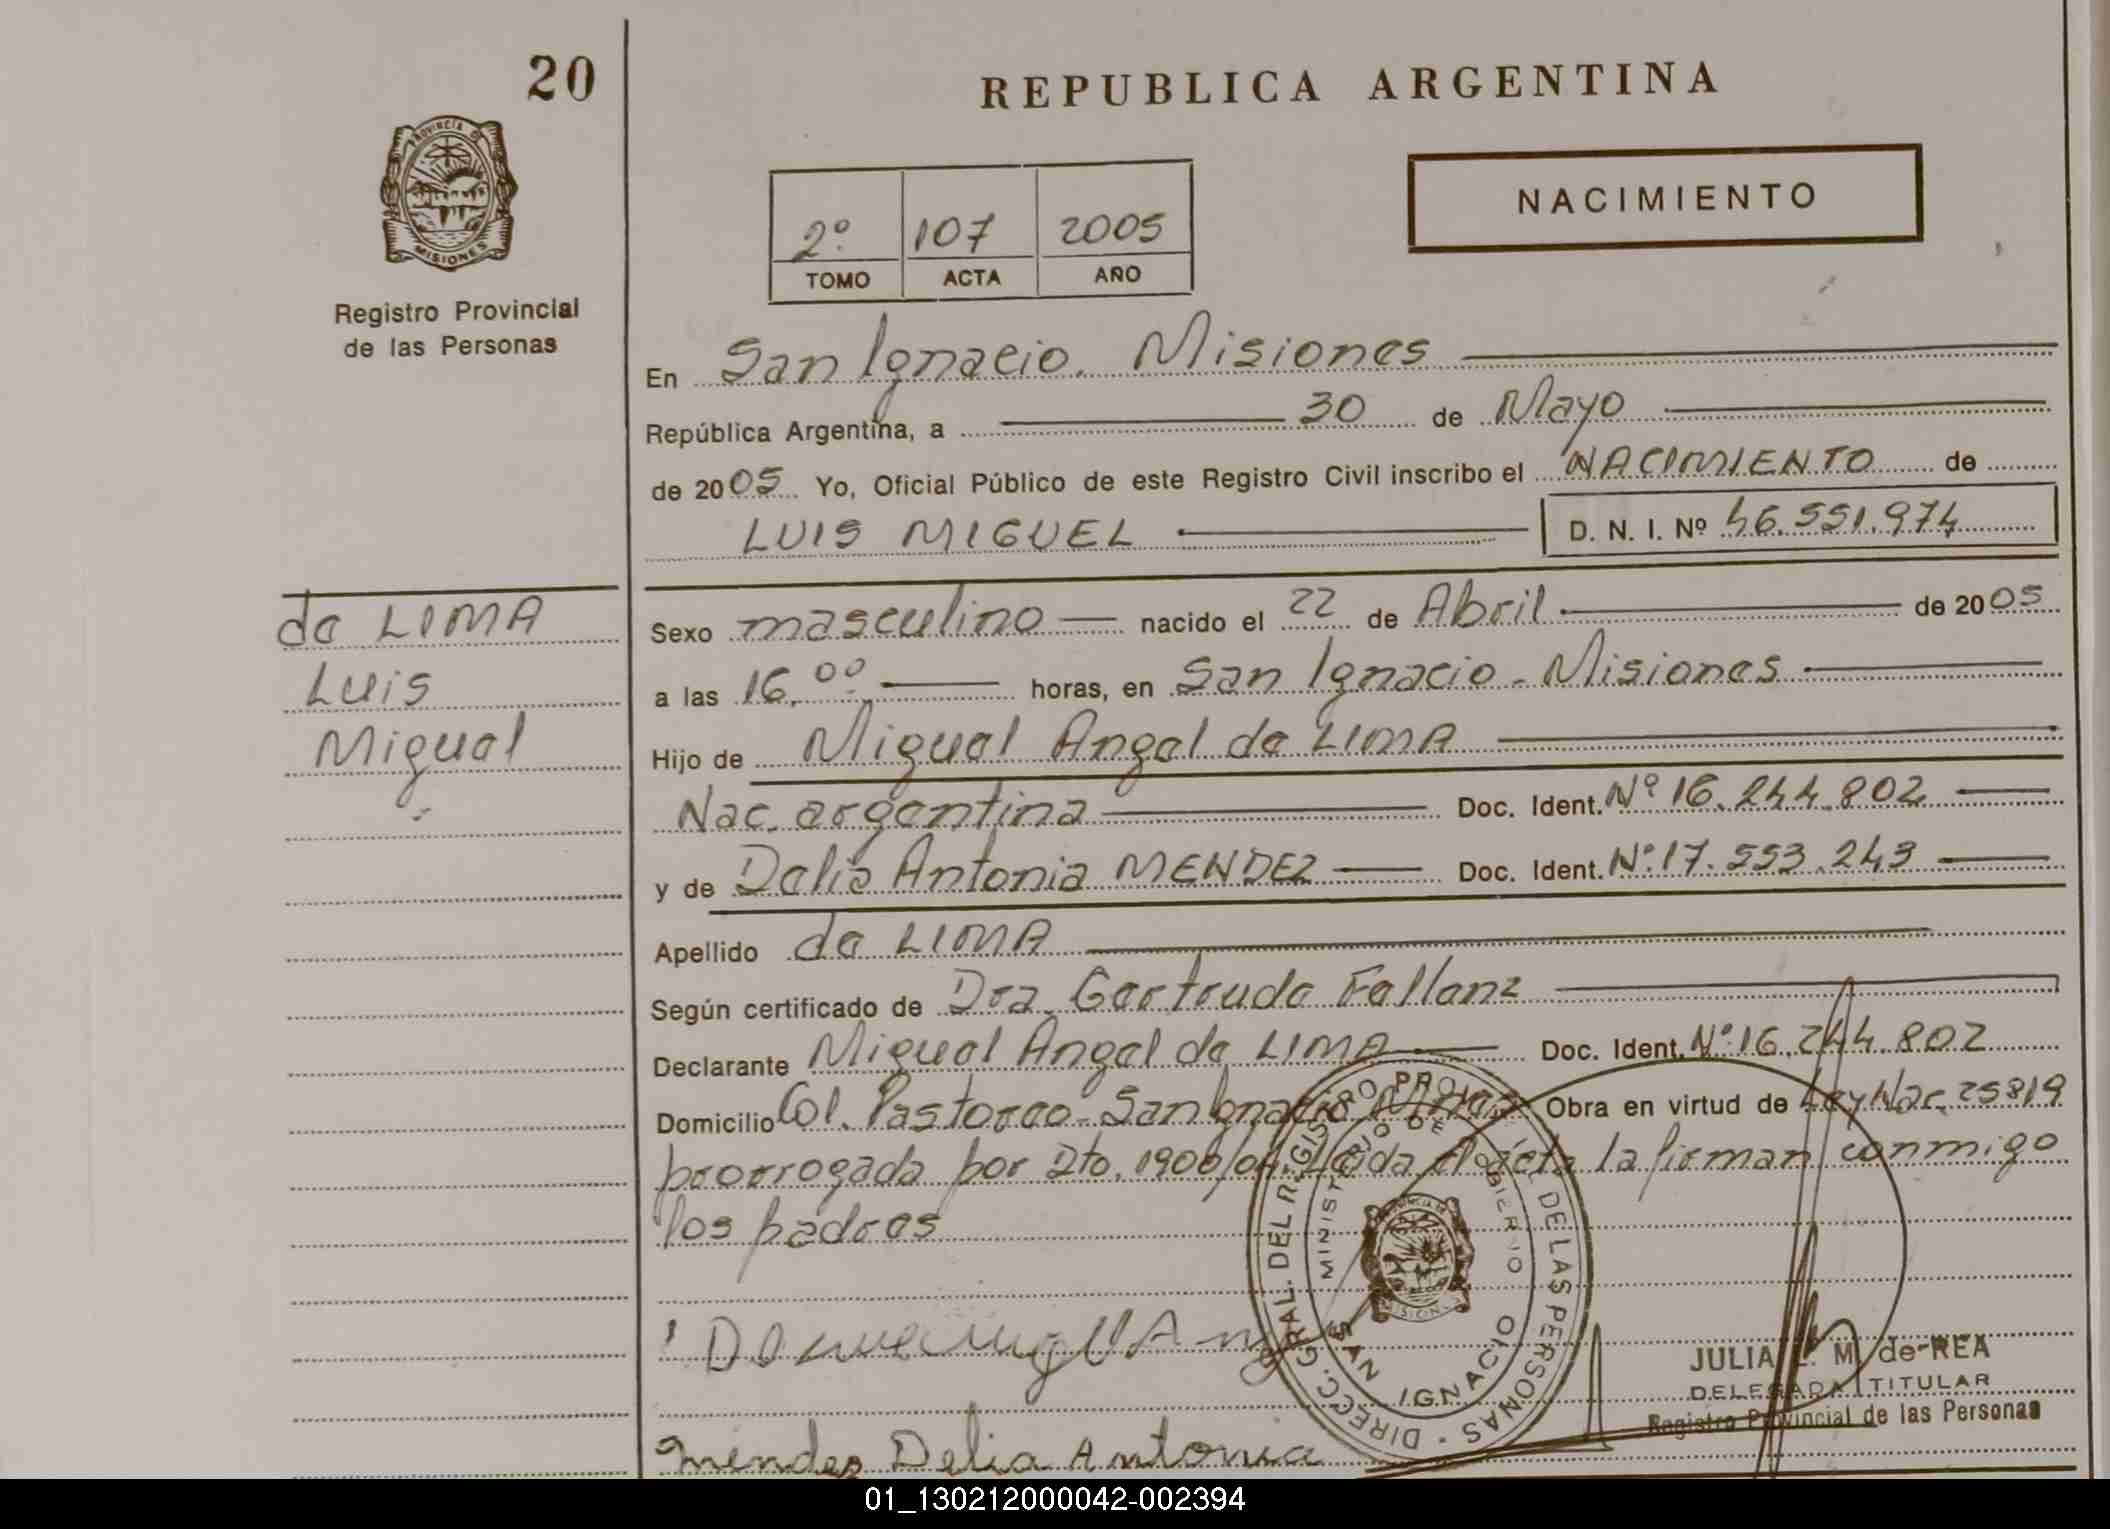 20
REPUBLICA ARGENTINA
PROVINCIA DE
MISIONES
Registro Provincial
de las Personas
NACIMIENTO
2º 107 2005
TOMO ACTA AÑO
En San Ignacio. Misiones
República Argentina, a 30 de Mayo
de 2005 Yo, Oficial Público de este Registro Civil inscribo el NACIMIENTO de
LUIS MIGUEL D. N. I. Nº 46.551.974
de LIMA
Luis
Miguel
Sexo masculino nacido el 22 de Abril de 2005
a las 16,00 horas, en San Ignacio - Misiones
Hijo de Miguel Angel de LIMA
Nac. argentina Doc. Ident. Nº 16.244.802
y de Delia Antonia MENDEZ Doc. Ident. Nº 17.553.243
Apellido de LIMA
Según certificado de Dra. Gertrude Fallanz
Declarante Miguel Ángel de LIMA Doc. Ident. Nº 16.244.802
Domicilio Col. Pastoreo - San Ignacio Obra en virtud de Ley Nac. 25819
prorrogada por Dto. 1900/04. Leida el acta la firman conmigo
los padres
DIRECC. GRAL. DEL REGISTRO PROVINCIAL DE LAS PERSONAS
MINISTERIO DE GOBIERNO
SAN IGNACIO
JULIA M. de REA
DELEGADA TITULAR
Registro Provincial de las Personas
Mendez Delia Antonia
01_130212000042-002394